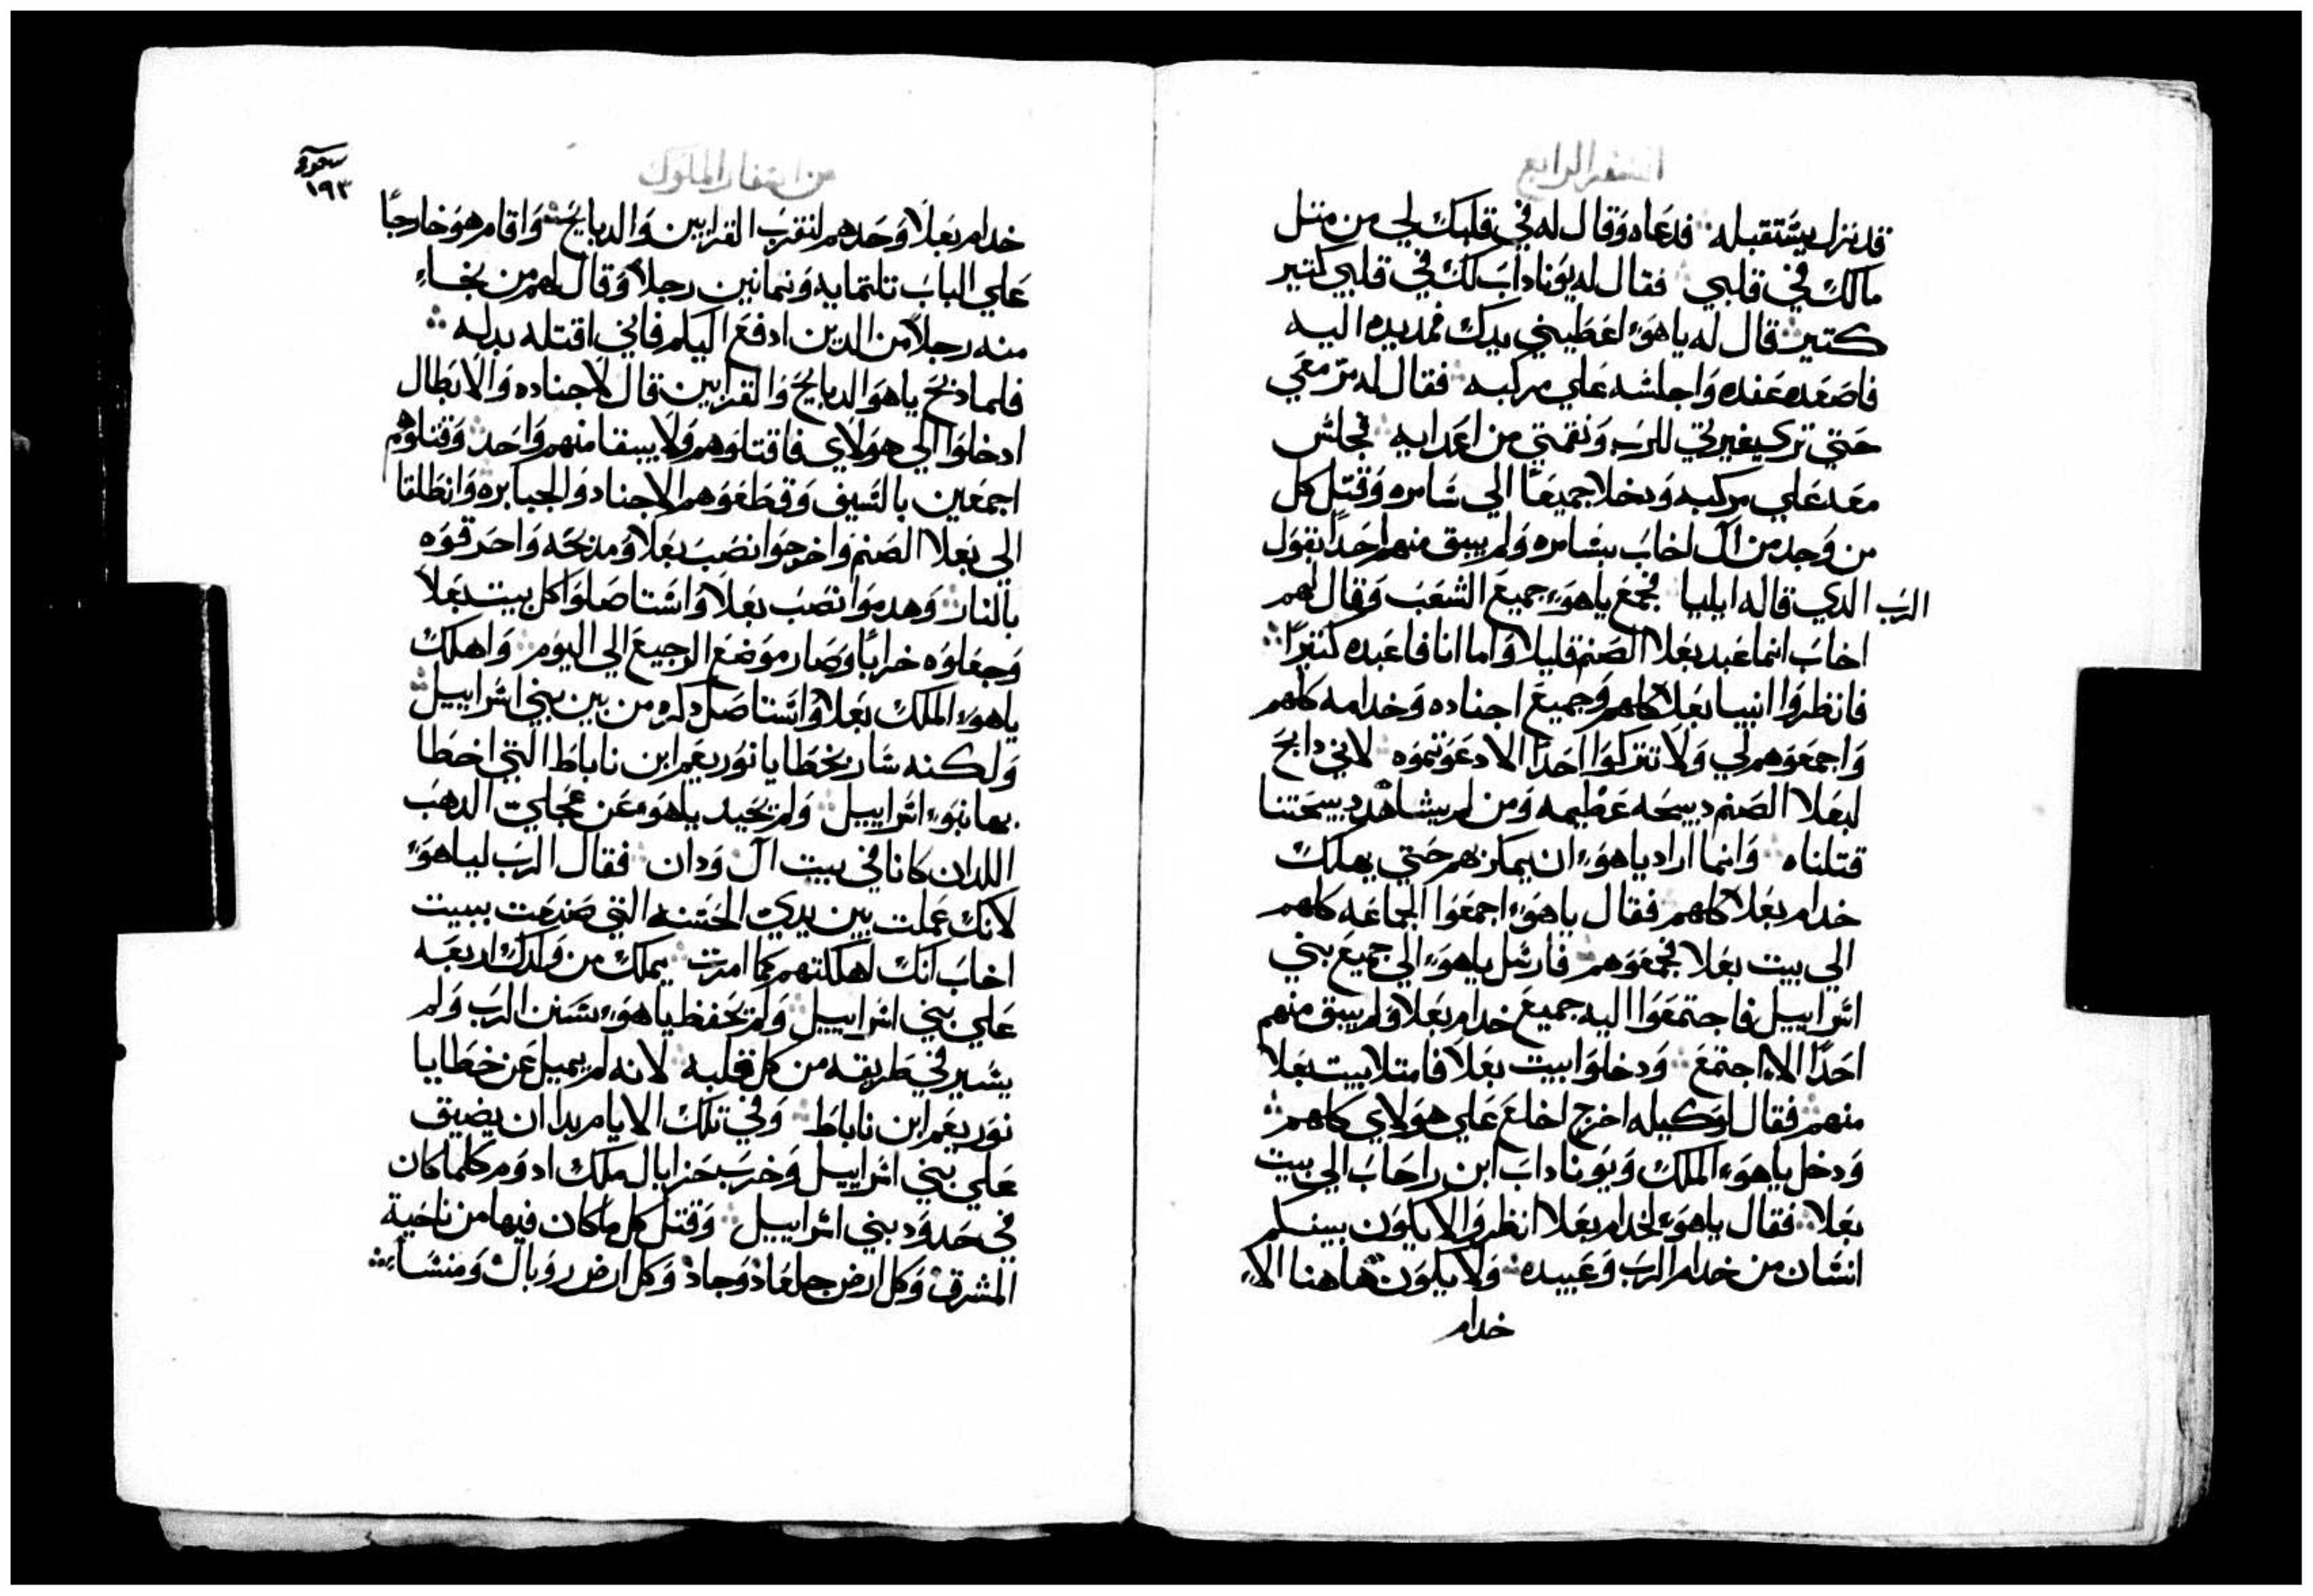 السفر الرابع
قد نزل يستقبله فدعاه وقال له في قلبك لي من متل
مالك في قلبي فقال له يوناداب لك في قلبي كتير
كتير قال له ياهوء اعطيني يدك فمد يده اليه
فاصعده عنده واجلسه علي مركبه فقال له مر معي
حتي تري غيرتي للرب ونقمتي من اعدايه فجلس
معه علي مركبه ودخلا جميعا الي سامره وقتل كل
من وجد من ال اخاب بسامره ولم يبق منهم احدا بقول
الرب الدي قاله ايليا فجمع ياهوء جميع الشعب وقال لهم
اخاب انما عبد بعلا الصنم قليلا واما انا فاعبده كتيرا
فانظروا انبيا بعلا كلهم وجميع اجناده وخدامه كلهم
واجمعوهم لي ولا تتركوا احدا الا دعوتموه لاني دابح
لبعلا الصنم دبيحه عظيمه ومن لم يشاهد دبيحتنا
قتلناه وانما اراد ياهوء ان يمكر بهم حتي يهلك
خدام بعلا كلهم فقال ياهوء اجمعوا الجماعه كلهم
الي بيت بعلا فجمعوهم فارسل ياهوء الي جميع بني
اسراييل فاجتمعوا اليه جميع خدام بعلا ولم يبق منهم
احدا الا اجتمع ودخلوا بيت بعلا فامتلا بيت بعلا
منهم فقال لوكيله اخرج اخلع علي هولاي كلهم
ودخل ياهوء الملك ويوناداب ابن راحاب الي بيت
بعلا فقال ياهوء لخدام بعلا انظروا لا يكون بينكم
انسان من خدام الرب وعبيده ولا يكون هاهنا الا
خدام
من اسفار الملوك
١٩٣
خدام بعلا وحدهم لنقرب القرابين والدبايح واقام هو خارجا
علي الباب تلتمايه وتمانين رجلا وقال لهم من نجاء
منه رجلا من الدين ادفع اليكم فاني اقتله بدله
فلما دبح ياهو الدبايح والقرابين قال لاجناده والابطال
ادخلوا الي هولاي فاقتلوهم ولا يبقا منهم واحد وقتلوهم
اجمعين بالسيف وقطعوهم الاجناد والجبابره وانطلقا
الي بعلا الصنم واخرجوا نصب بعلا ومدبحه واحرقوه
بالنار وهدموا نصب بعلا واستاصلوا كل بيت بعلا
وجعلوه خرابا وصار موضع الرجيع الي اليوم واهلك
ياهوء الملك بعلا واستاصل دكره من بين بني اسراييل
ولكنه سار بخطايا نوربعم ابن ناباط التي اخطا
بها بنوء اسراييل ولم يحيد ياهوء عن عجلي الدهب
اللدان كانا في بيت ال ودان فقال الرب لياهوء
لانك عملت بين يدي الحسنه التي صنعت ببيت
اخاب انك اهلكتهم كما امرت يملك من ولدك اربعه
علي بني اسراييل ولم يحفظ ياهوء سنن الرب ولم
يسير في طريقه من كل قلبه لانه لم يميل عن خطايا
نوربعم ابن ناباط وفي تلك الايام بدا ان يضيق
علي بني اسراييل وخرب حزايال ملك ادوم كلما كان
في حدود بني اسراييل وقتل كل ماكان فيها من ناحية
المشرق وكل ارض جلعاد وجاد وكل ارض روبال ومنساء